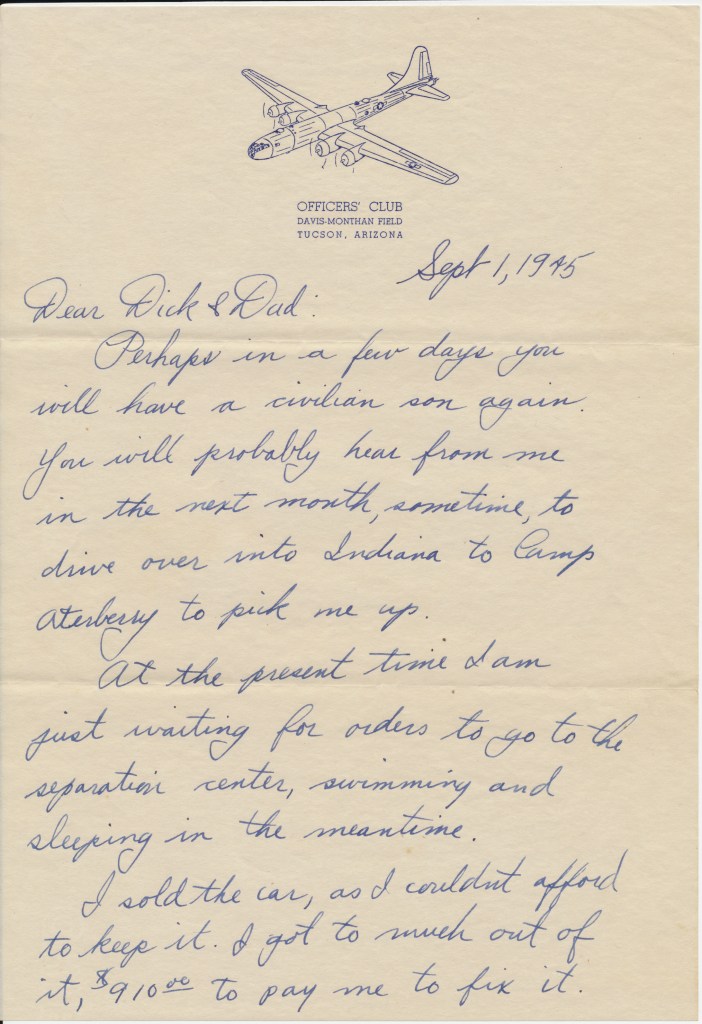 OFFICERS' CLUB
DAVIS-MONTHAN FIELD
TUCSON, ARIZONA
Sept 1, 1945
Dear Dick & Dad:
Perhaps in a few days you
will have a civilian son again.
You will probably hear from me
in the next month, sometime, to
drive over into Indiana to Camp
Aterberry to pick me up.
At the present time I am
just waiting for orders to go to the
separation center, swimming and
sleeping in the meantime.
I sold the car, as I couldn't afford
to keep it. I got to much out of
it, $910.00 to pay me to fix it.